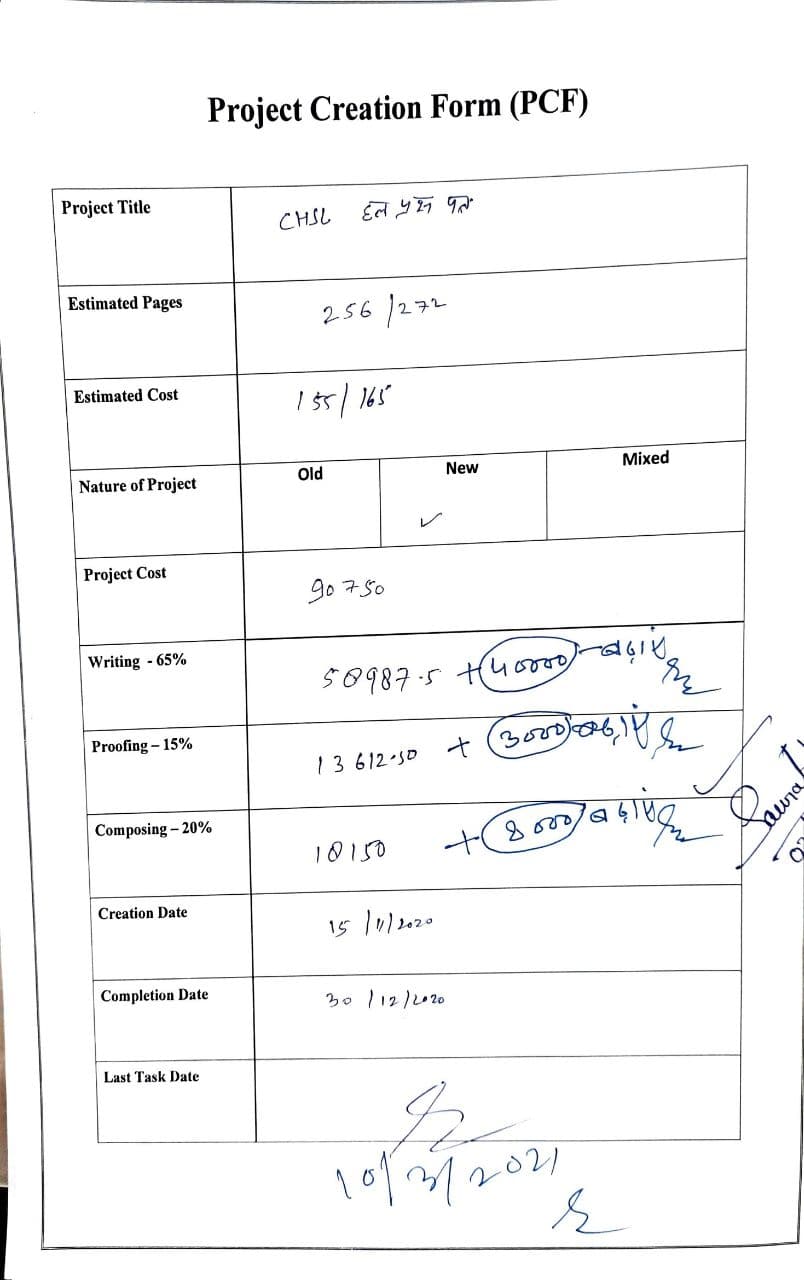 Project Creation Form (PCF)
Project Title CHSL हल प्रश्न पत्र
Estimated Pages 256/272
Estimated Cost 155/165
Nature of Project Old New ✓ Mixed
Project Cost 90750
Writing - 65% 58987.5 +
Proofing – 15% 13612.50 + 3000
Composing – 20% 18150 + 8000
Creation Date 15/11/2020
Completion Date 30/12/2020
Last Task Date
10/3/2021